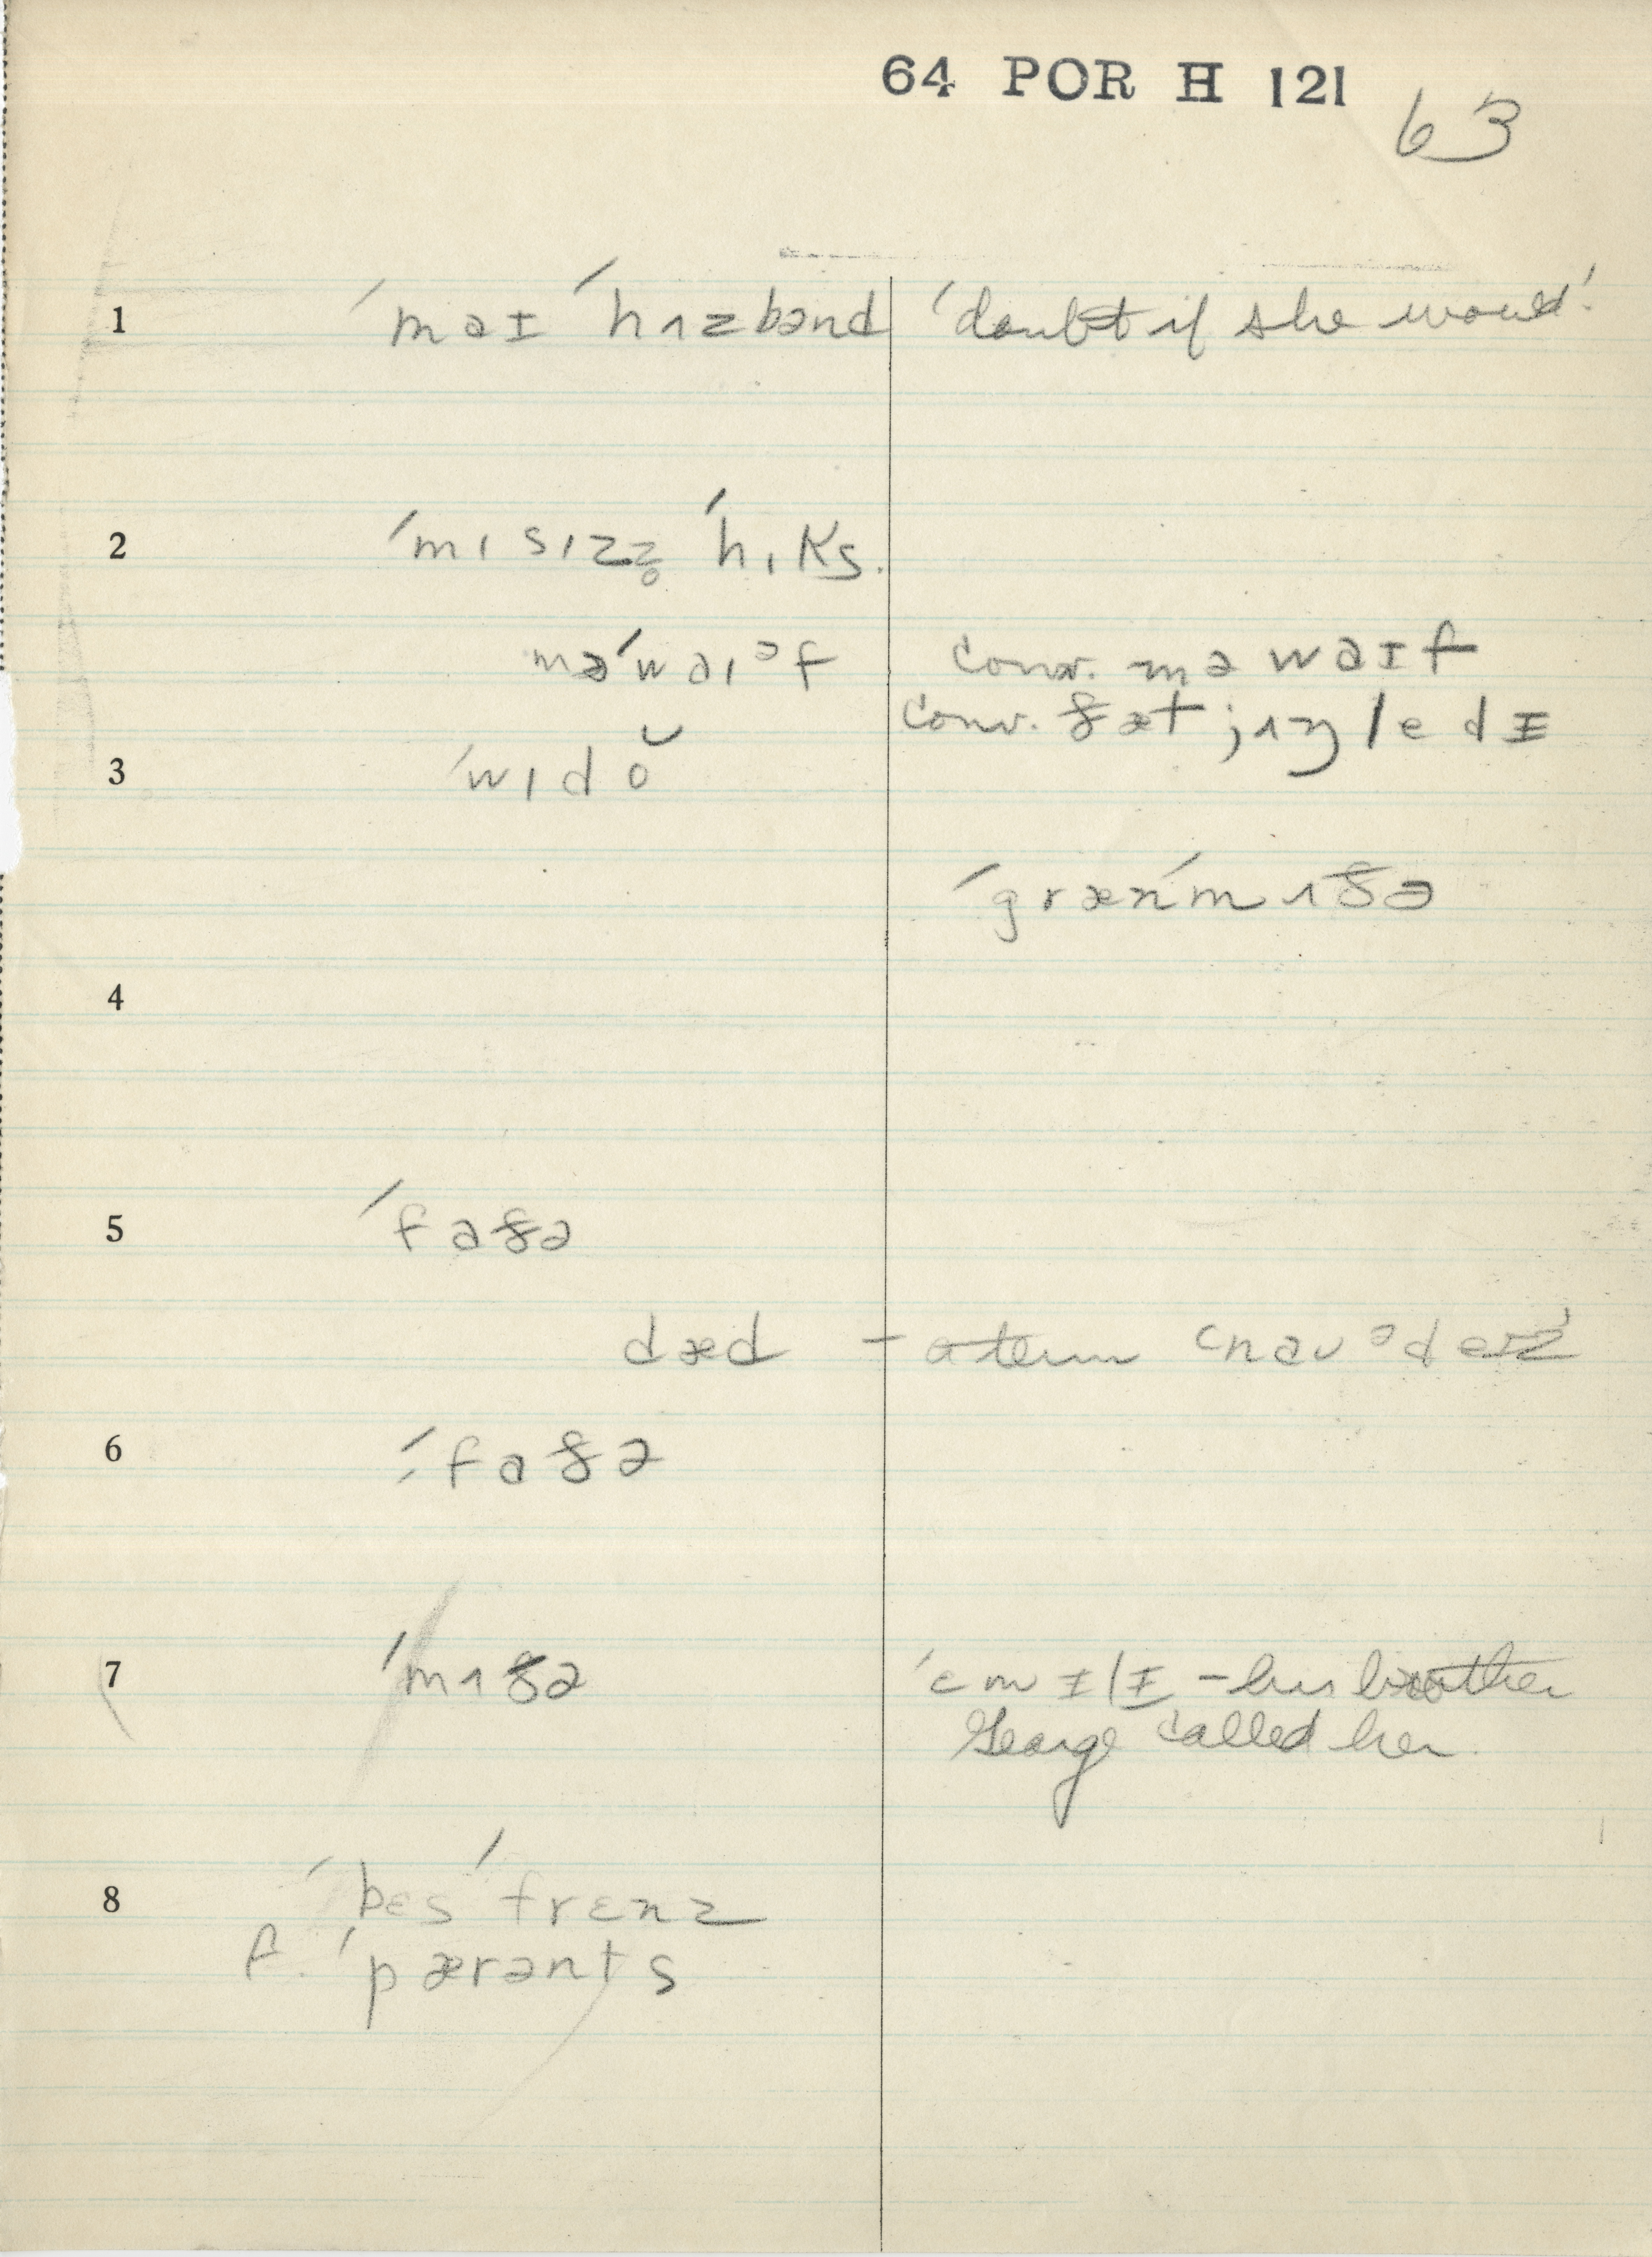 64 POR H 121
63
1 ˈmaɪ ˈhʌzbənd 'doubt if she would'
2 ˈmɪsɪzz̥ ˈhɪks.
məˈwaɪᵊf conv. mə waɪf
conv. ðæt jʌŋ ledɪ
3 ˈwɪdŏ
ˈgrænˈmʌðə
4
5 ˈfaðə
dæd – a term cnaᴜᵊdeɪz'
6 ˈfaðə
7 ˈmʌðə ˈɛmɪlɪ – his brother
George called her
8 ˈbɛs ˈfrɛnz
f. ˈpærənts